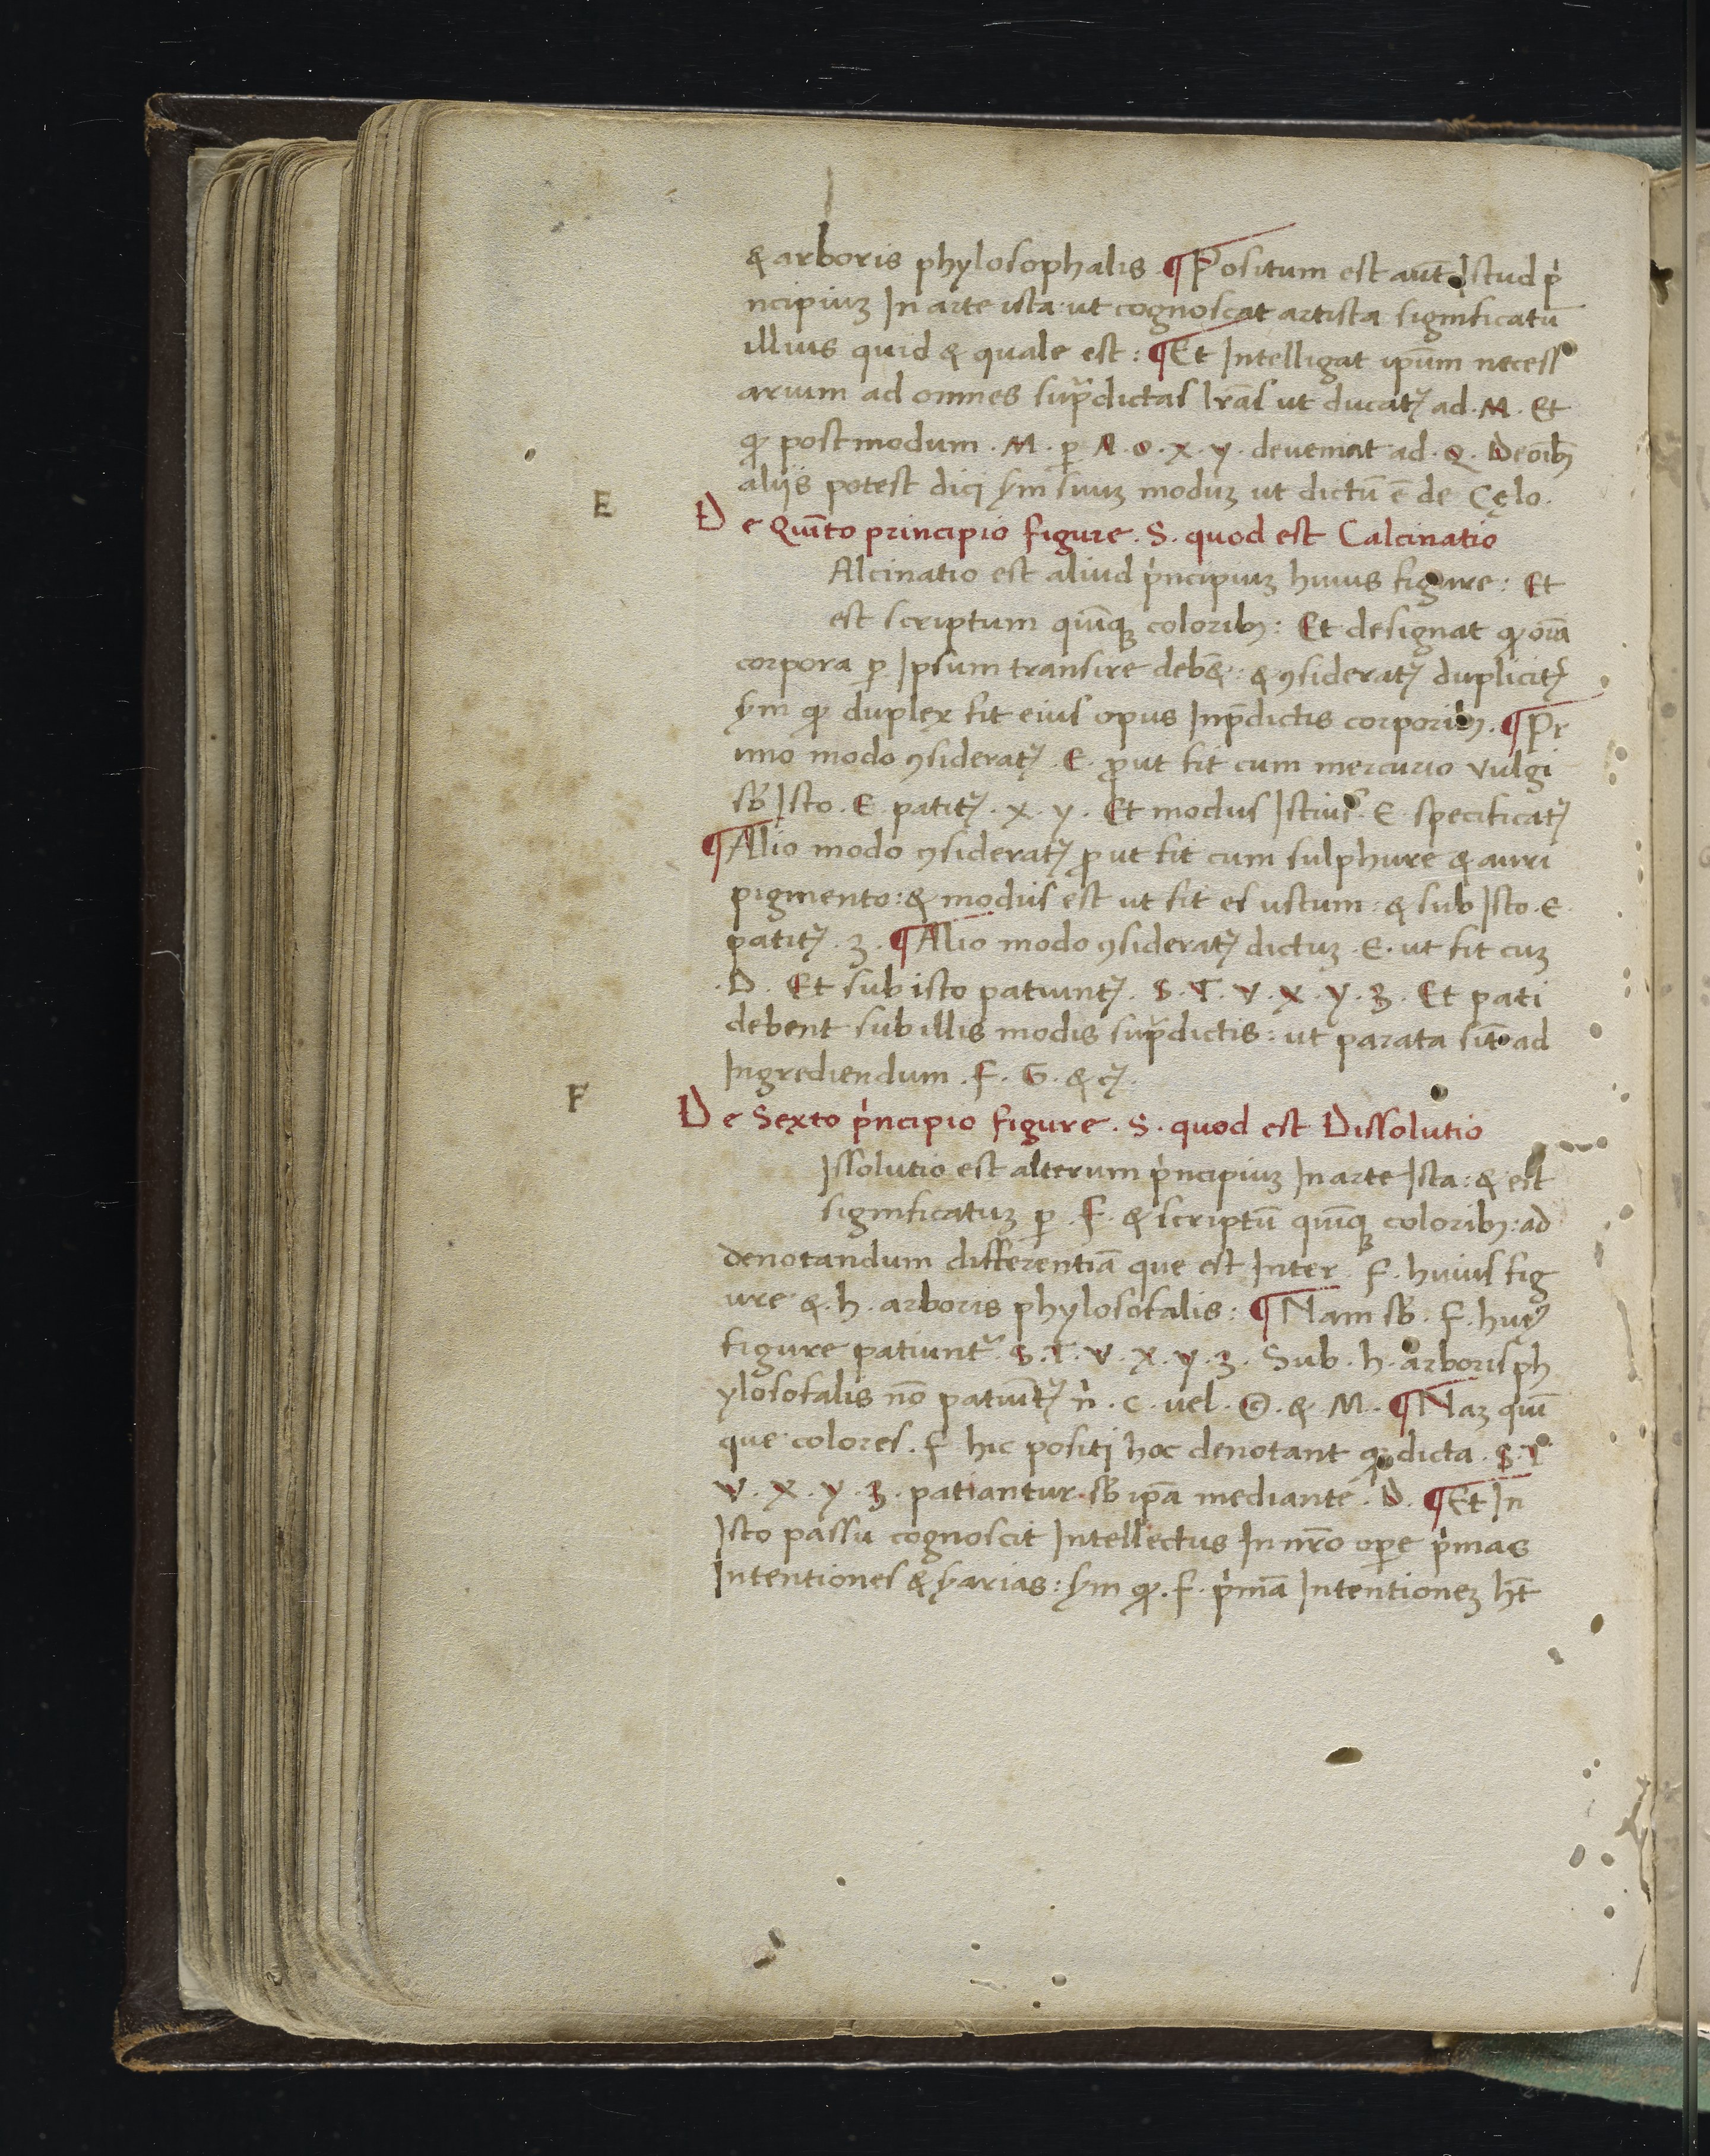 & arboris phylosophalis. ¶ Positum est aut̄ Istud pⁱ
ncipiuꝫ In arte ista: ut cognoscat artista significatū
illius quid & quale est: ¶ Et Intelligat ip̄um necess
arium ad omnes sup̄dictas lr̄as ut ducatꝫ ad. M. Et
ꝙ postmodum. M. ꝑ N. O. X. Y. deueniat ad. Q. De oı̄bꝫ
aliis potest dici s̶m suuꝫ moduꝫ ut dictū ē de Cęlo.
E De Quı̄to principio figure. S. quod est Calcinatio
Alcinatio est aliud pⁱncipiuꝫ huius figure: Et
est scriptum quı̄qꝫ coloribꝫ: Et designat ꝙ oı̄a
corpora ꝑ Ipsum transire deb&: & ꝯsideratꝫ duplicitꝫ
s̶m ꝙ duplex fit eius opus In p̄dictis corporibꝫ. ¶ Pr
imo modo ꝯsideratꝫ. E. ꝓut fit cum mercurio vulgi
sb̄ Isto. E. patitꝫ. X. Y. Et modus Istius. E. specificatꝫ
¶ Alio modo ꝯsideratꝫ ꝓut fit cum sulphure & auri
pigmento: & modus est ut fit es ustum: & sub Isto. E.
patitꝫ. Ʒ. ¶ Alio modo ꝯsideratꝫ dictuꝫ. E. ut fit cuꝫ
. D. Et sub isto patiuntꝫ. S. T. V. X. Y. Ʒ. Et pati
debent sub illis modis sup̄dictis: ut parata sīt ad
Ingrediendum. F. G. & cꝫ.
F De Sexto pⁱncipio figure. S. quod est Dissolutio
Issolutio est alterum pⁱncipiuꝫ In arte Ista: & est
significatuꝫ ꝑ. F. & scriptū quı̄qꝫ coloribꝫ: ad
denotandum differentiā que est Inter. F. huius fig
ure &. h. arboris phylosofalis: ¶ Nam sb̄. F. huꝰ
figure patiuntʳ. S. T. V. X. Y. Ʒ. Sub. h. arboris ph
ylosofalis nō patiūtꝫ nⁱ. C. uel. ©. & M. ¶ Naꝫ quı̄
que colores. F. hic positi hoc denotant ꝙ dicta. S. T
V. X. Y. Ʒ. patiantur sb̄ ip̄a mediante. D. ¶ Et In
Isto passu cognoscit Intellectus In nr̄o oꝑe pⁱmas
Intentiones & s̶arias: s̶m ꝙ. F. pⁱmā Intentioneꝫ ht̄